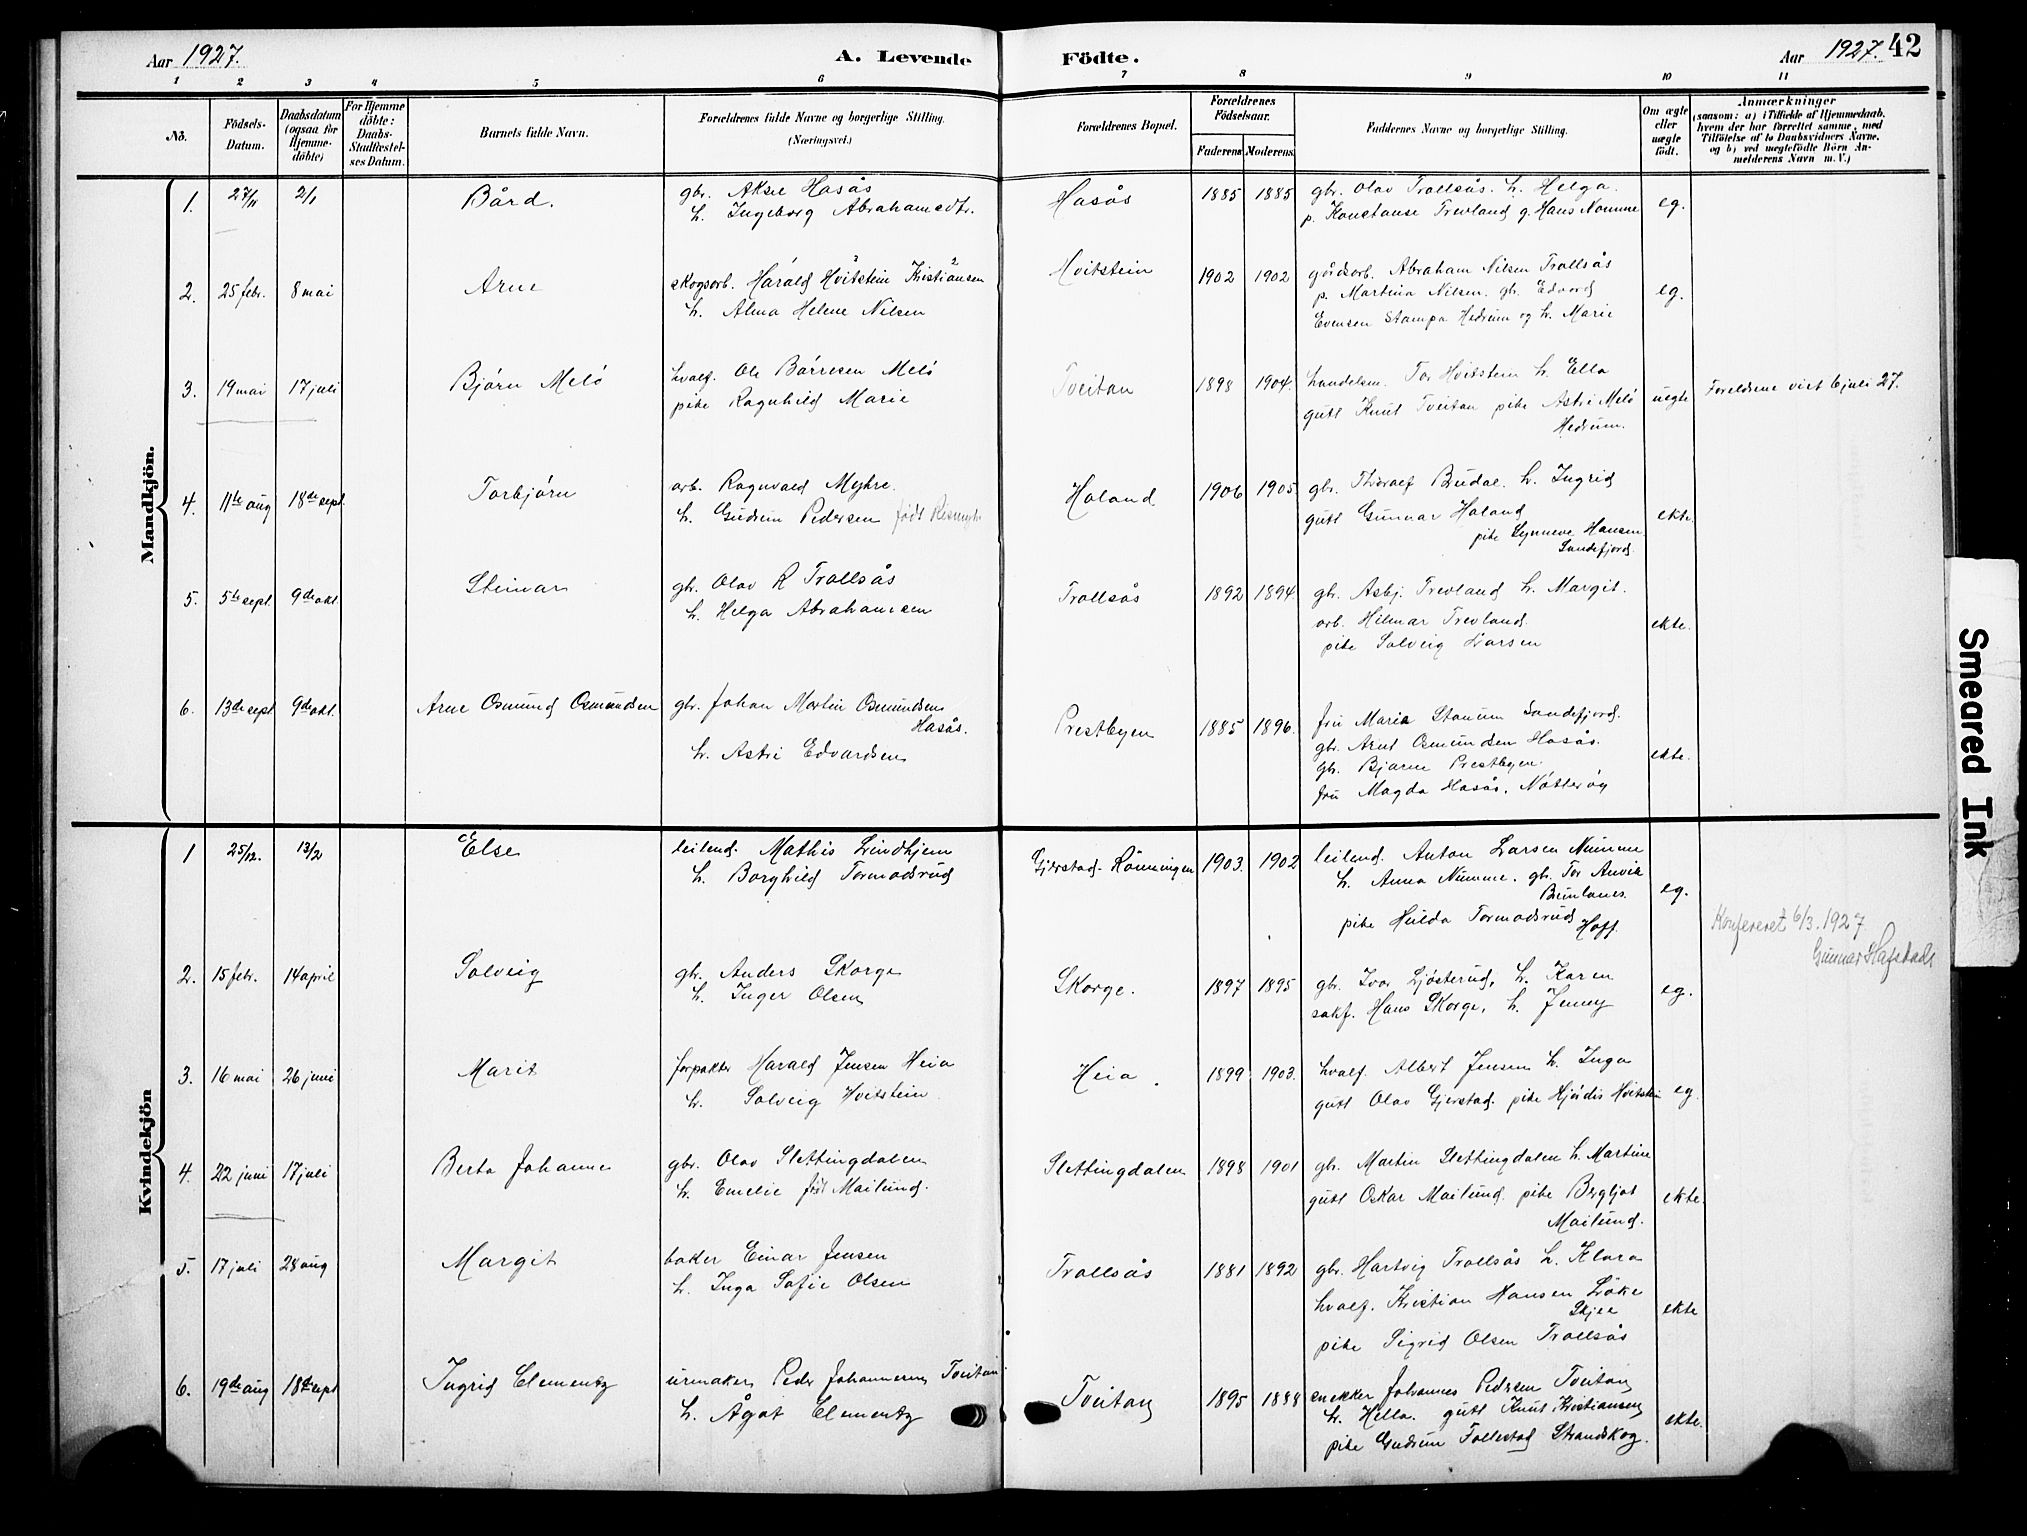 Aar 1927.
A. Levende Födte.
Aar 1927. 42
1 2 3 4 5 6 7 8 9 10 11
No.
Födsels-Datum.
Daabsdatum (ogsaa for Hjemme-döbte)
For Hjemme döbte: Daabs-Stadfæstel-ses Datum.
Barnets fulde Navn.
Forældrenes fulde Navne og borgerlige Stilling. (Næringsvei.)
Forældrenes Bopæl.
Forældrenes Födselsaar.
Faderens Moderens
Faddernes Navne og borgerlige Stilling.
Om ægte eller uægte födt.
Anmærkninger (saasom: a) i Tilfælde af Hjemmedaab. hvem der har forrettet samme, med Tilföielse af to Daabsvidners Navne. og b) ved uægtefödte Börn An-melderens Navn m. V.)
Mandkjön.
1. 27/11 2/1 Bård. gbr. Aksel Hasås
h. Ingeborg Abrahamsdtr.
Hasås 1885 1885 gbr. Olav Trollsås. h. Helga.
p. Konstanse Trevland g. Hans Nomme eg.
2. 25 febr. 8 mai Arne skogsarb. Harald Hvitstein Kristiansen
h. Alma Helene Nilsen
Hvitstein 1902 1902 gårdsarb. Abraham Nilsen Trollsås
p. Martina Nilsen. gb. Edvard
Evensen Stampa Hedrum og h. Marie eg.
3. 19 mai 17 juli Björn Melö hvalf. Ole Börresen Melö
pike Ragnhild Marie
Tveitan 1898 1904. handelsm. Tor Hvitstein h. Ella
gutt Knut Tveitan pike Astri Melö
Hedrum. uegte Foreldrene viet 6 juli 27.
4. 11te aug 18de sept. Torbjörn arb. Ragnvald Myhre.
h. Gudrun Pedersen født
Holand 1906 1905 gbr. Thoralf Brudal h. Ingrid
gutt Gunnar Holand
pike Synneve Hansen
Sandefjord. ekte.
5. 5te sept. 9de okt. Steinar gbr. Olav R Trollsås
h. Helga Abrahamsen
Trollsås 1892 1894 gbr. Asbj. Trevland h. Margit.
arb. Hilmar Trevland.
pike Solveig Larsen ekte.
6. 13de sept 9de okt. Arne Osmund Osmundsen gbr. Johan Martin Osmundsen
Hasås.
h. Astri Edvardsen
Prestbyen 1885 1896. fru Maria Stanum Sandefjord.
gbr. Arnt Osmundsen Hasås.
gbr. Bjarne Prestbyen.
fru Magda Hasås, Nötteröy ekte.
Kvindekjön
1 25/12. 13/2 Else leilend. Mathis Lindhjem
h. Borghild Tormodsrud
Gjerstad-Rönningen 1903. 1902 leilend. Anton Larsen Nomme
h. Anna Nomme. gb. Tor Anvik
Brunlanes.
pike Hulda Tormodsrud Hoff. eg.
Konfereret 6/3. 1927
Gunnar Hafstad
2. 15 febr. 14 april Solveig gbr. Anders Skorge
h. Inger Olsen
Skorge. 1897 1895 gbr. Ivar Ljösterud, h. Karen
sakf. Hans Skorge, h. Jenny eg.
3. 16 mai 26 juni Marit forpakter Harald Jensen Heia
h. Solveig Hvitstein
Heia. 1899 1903. hvalf. Albert Jensen h. Inga
gutt Olav Gjerstad. pike Hjördis Hvitstein eg
4. 22 juni 17 juli Berta Johanne gbr. Olav Slettingdalen
h. Emelie født Mailund.
Slettingdalen 1898 1901 gbr. Martin Slettingdalen h. Martine
gutt Oskar Mailund. pike Bergljot
Mailund. ekte
5. 17 juli 28 aug Margit baker Einar Jensen
h. Inga Sofie Olsen
Trollsås 1881 1892 gbr. Hartvig Trollsås h. Klara
hvalf. Kristian Hansen Löke
Skjee
pike Sigrid Olsen Trollsås ekte
6. 19de aug 18de sept Ingrid Clementz urmaker Peder Johannesen Tveitan
h. Ågot Clementz
Tveitan 1895 1888 snekker Johannes Pedersen Tveitan
h. Hella. gutt Knut Kristiansen
pike Gudrun Follestad Strandskog. ekte.
Smeared Ink